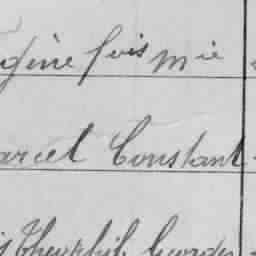 gène fois Mie
arcel Constant
Théophile Georges